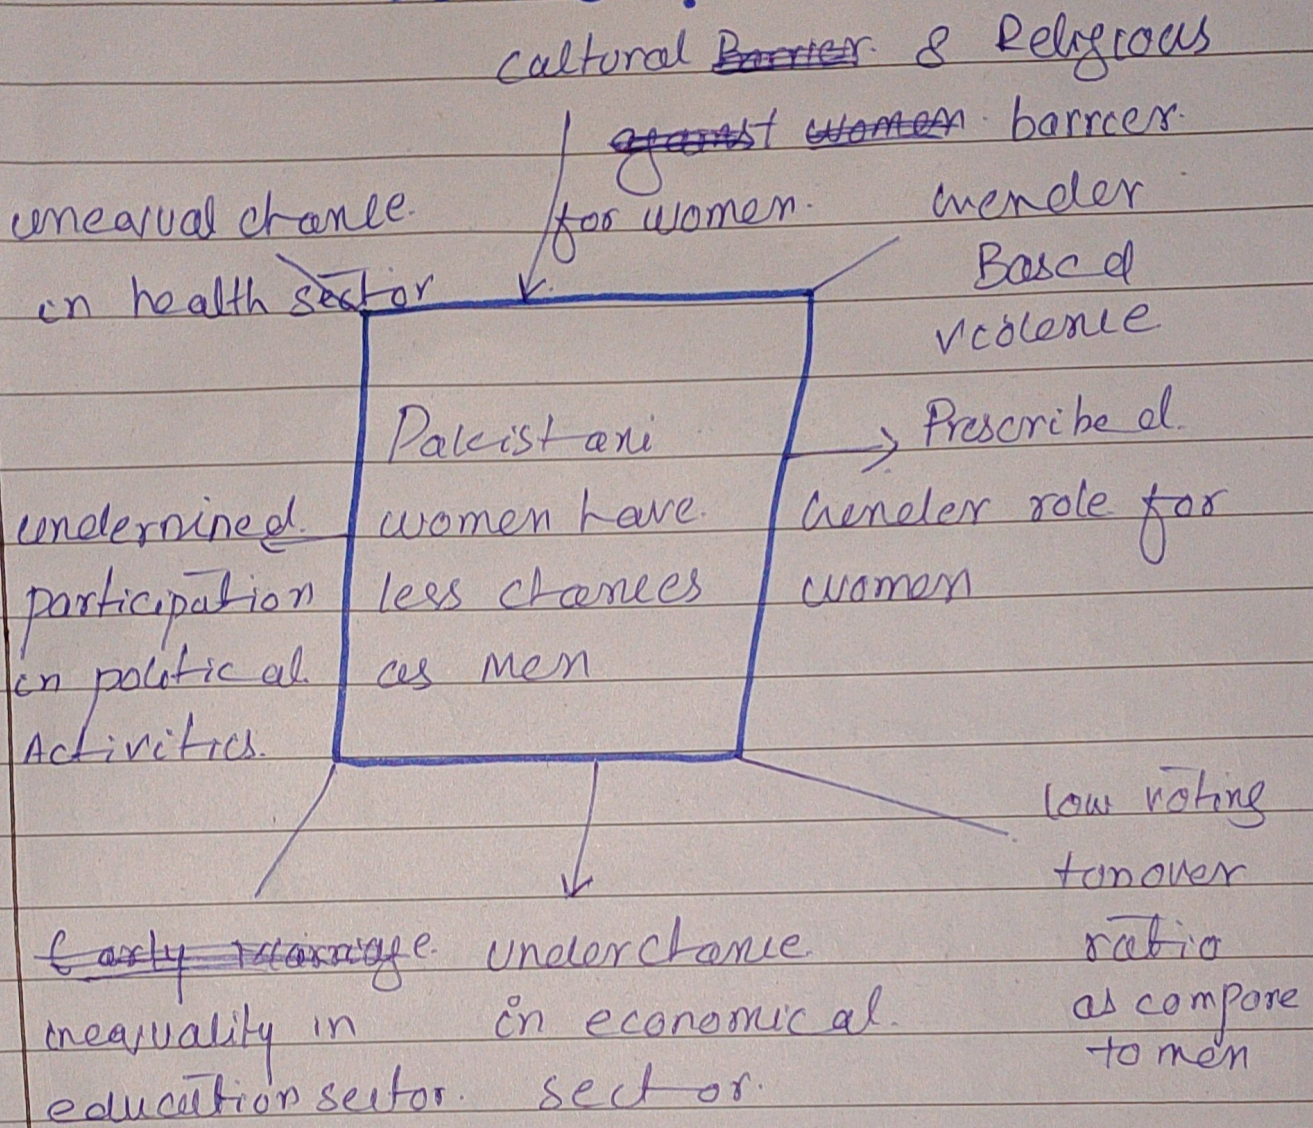 cultural Barrier & Religious
against women barrier
for women.
unequal chance
in health sector
Gender
Based
violence
Pakistani
women have
less chances
as men
Prescribed
Gender role for
women
undermined
participation
in political
Activities.
low voting
tonover
ratio
as compare
to men
Early Marriage
inequality in
education sector.
underchance
in economical
sector.